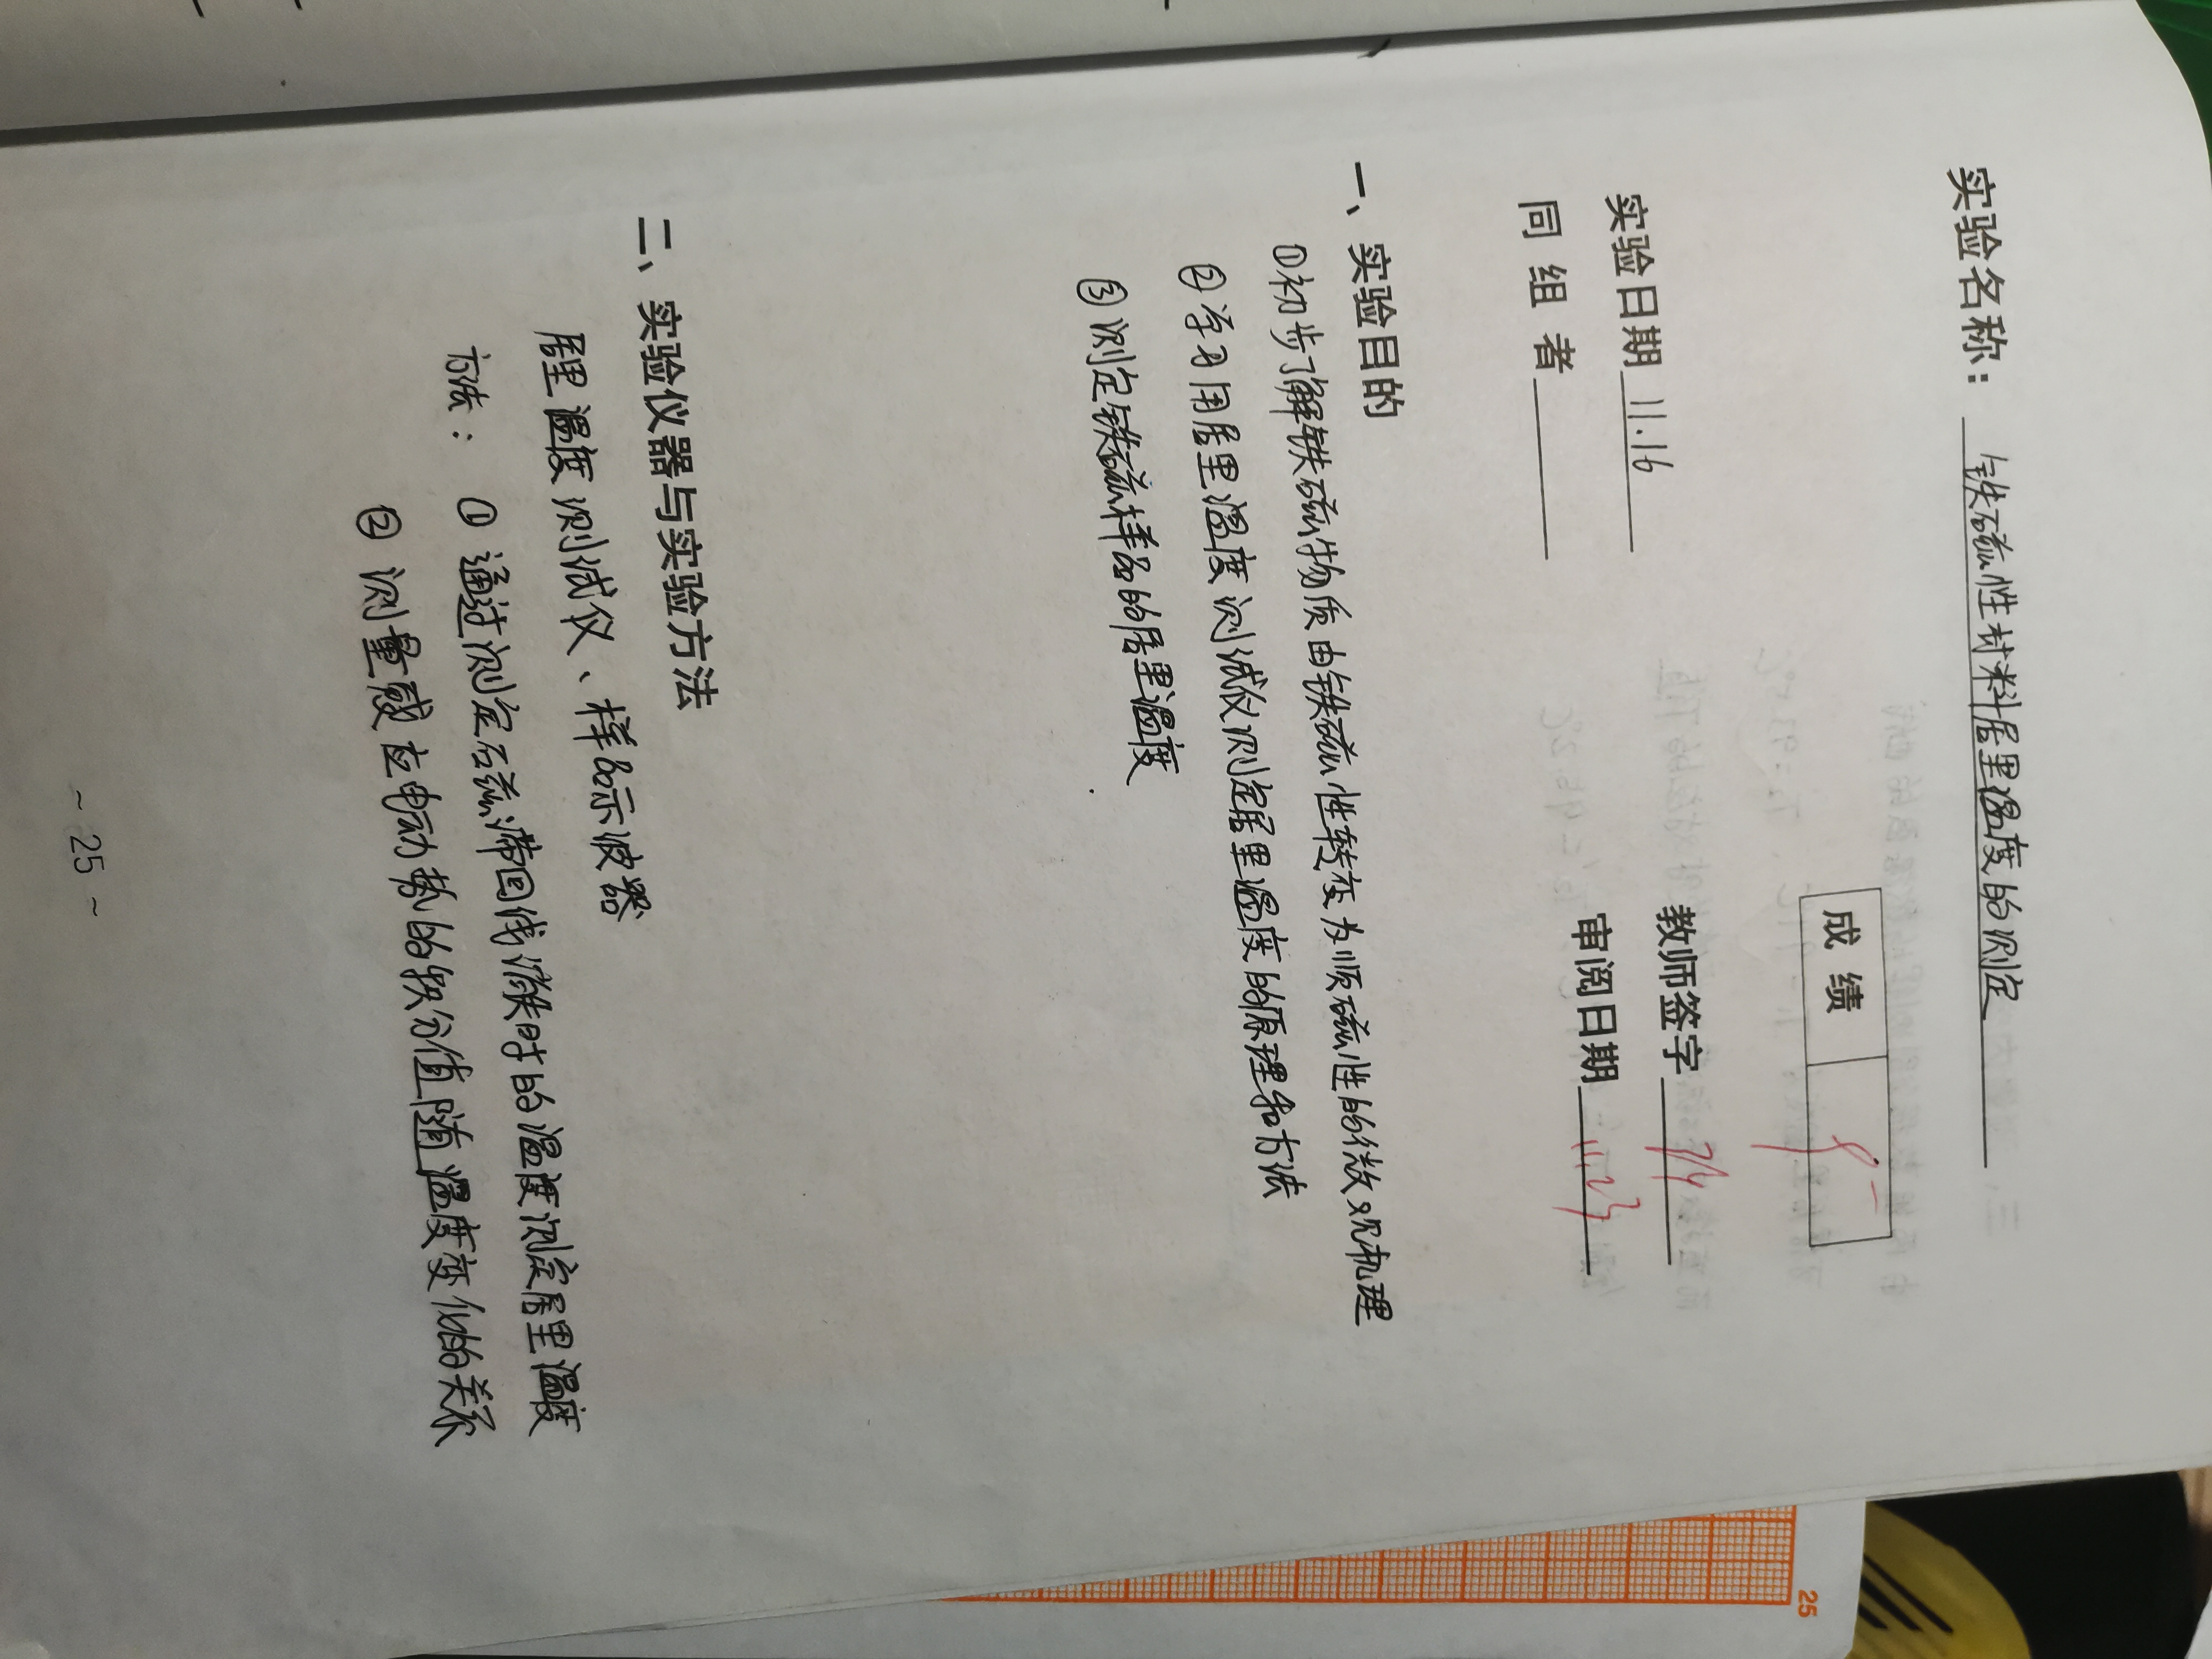 实验名称：铁磁性材料居里温度的测定
成绩
实验日期 11.16 教师签字
同组者 审阅日期 11.23
一、实验目的
①初步了解铁磁物质由铁磁性转变为顺磁性的微观机理
②学习用居里温度测试仪测定居里温度的原理和方法
③测定铁磁样品的居里温度
二、实验仪器与实验方法
居里温度测试仪、样品示波器
方法：①通过测定磁滞回线消失时的温度测定居里温度
②测量感应电动势的积分值随温度变化的关系
~ 25 ~
25